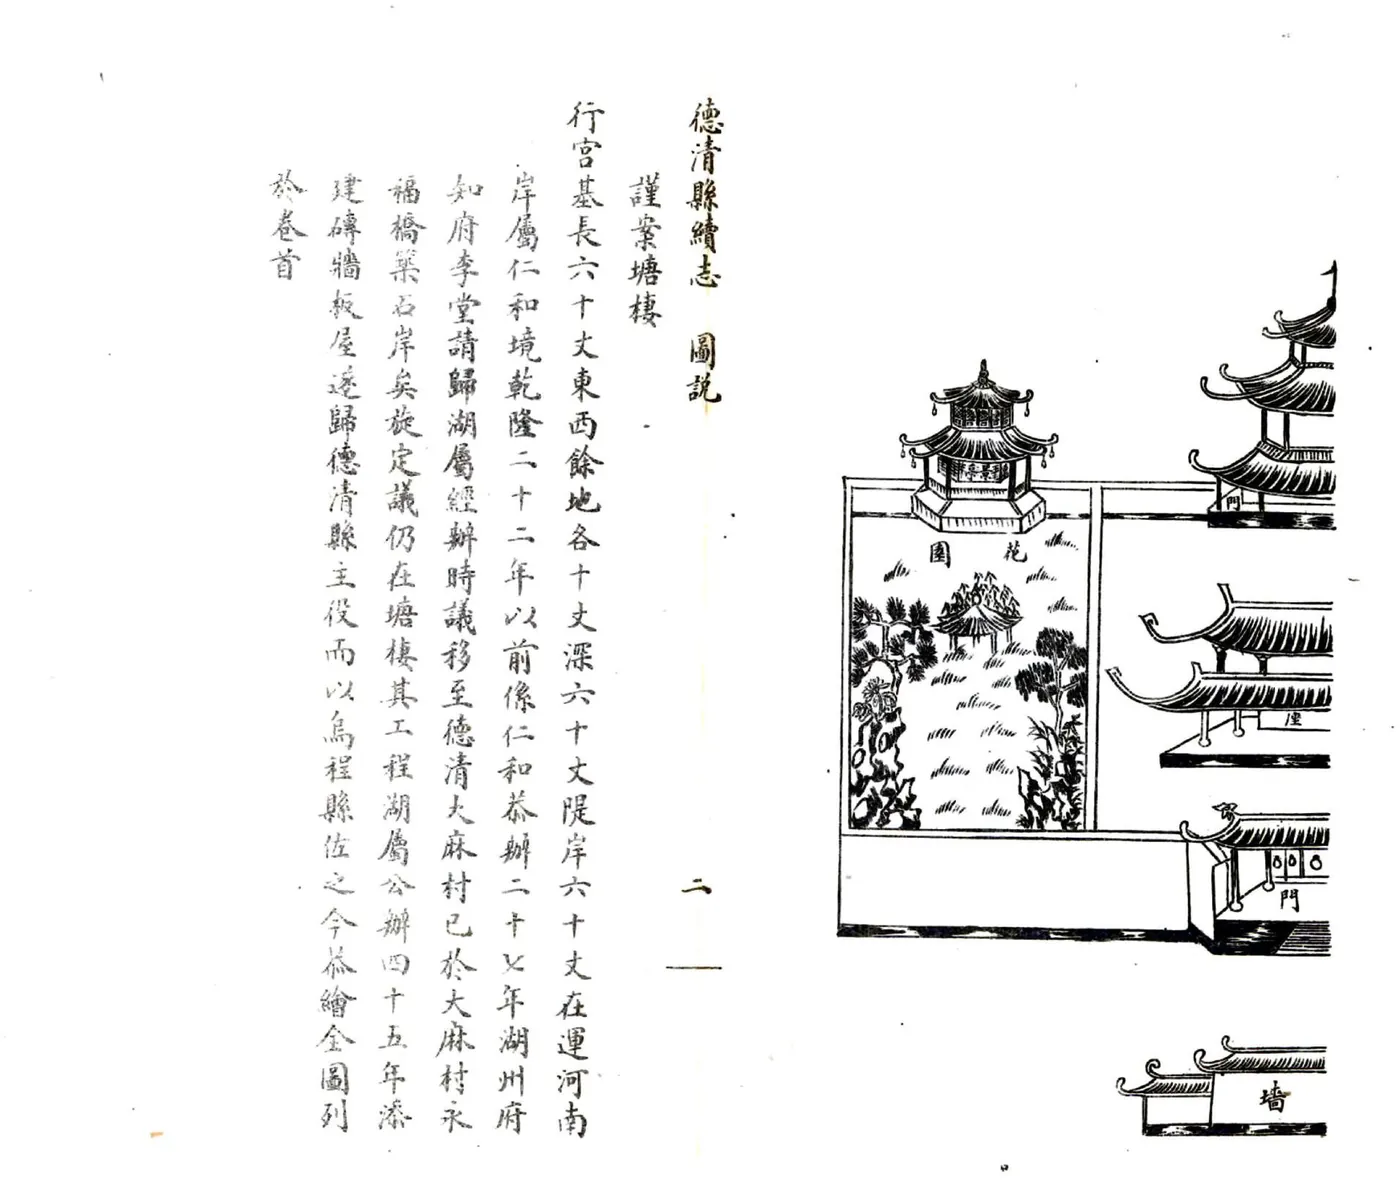 門
花園
門
墙
德清縣續志 圖說 二
謹案塘棲
行宮基長六十丈東西餘地各十丈深六十丈隄岸六十丈在運河南
岸屬仁和境乾隆二十二年以前係仁和恭辦二十七年湖州府
知府李堂請歸湖屬經辦時議移至德清大麻村已於大麻村永
福橋築石岸矣旋定議仍在塘棲其工程湖屬公辦四十五年添
建磚牆板屋遂歸德清縣主役而以烏程縣佐之今恭繪全圖列
於卷首